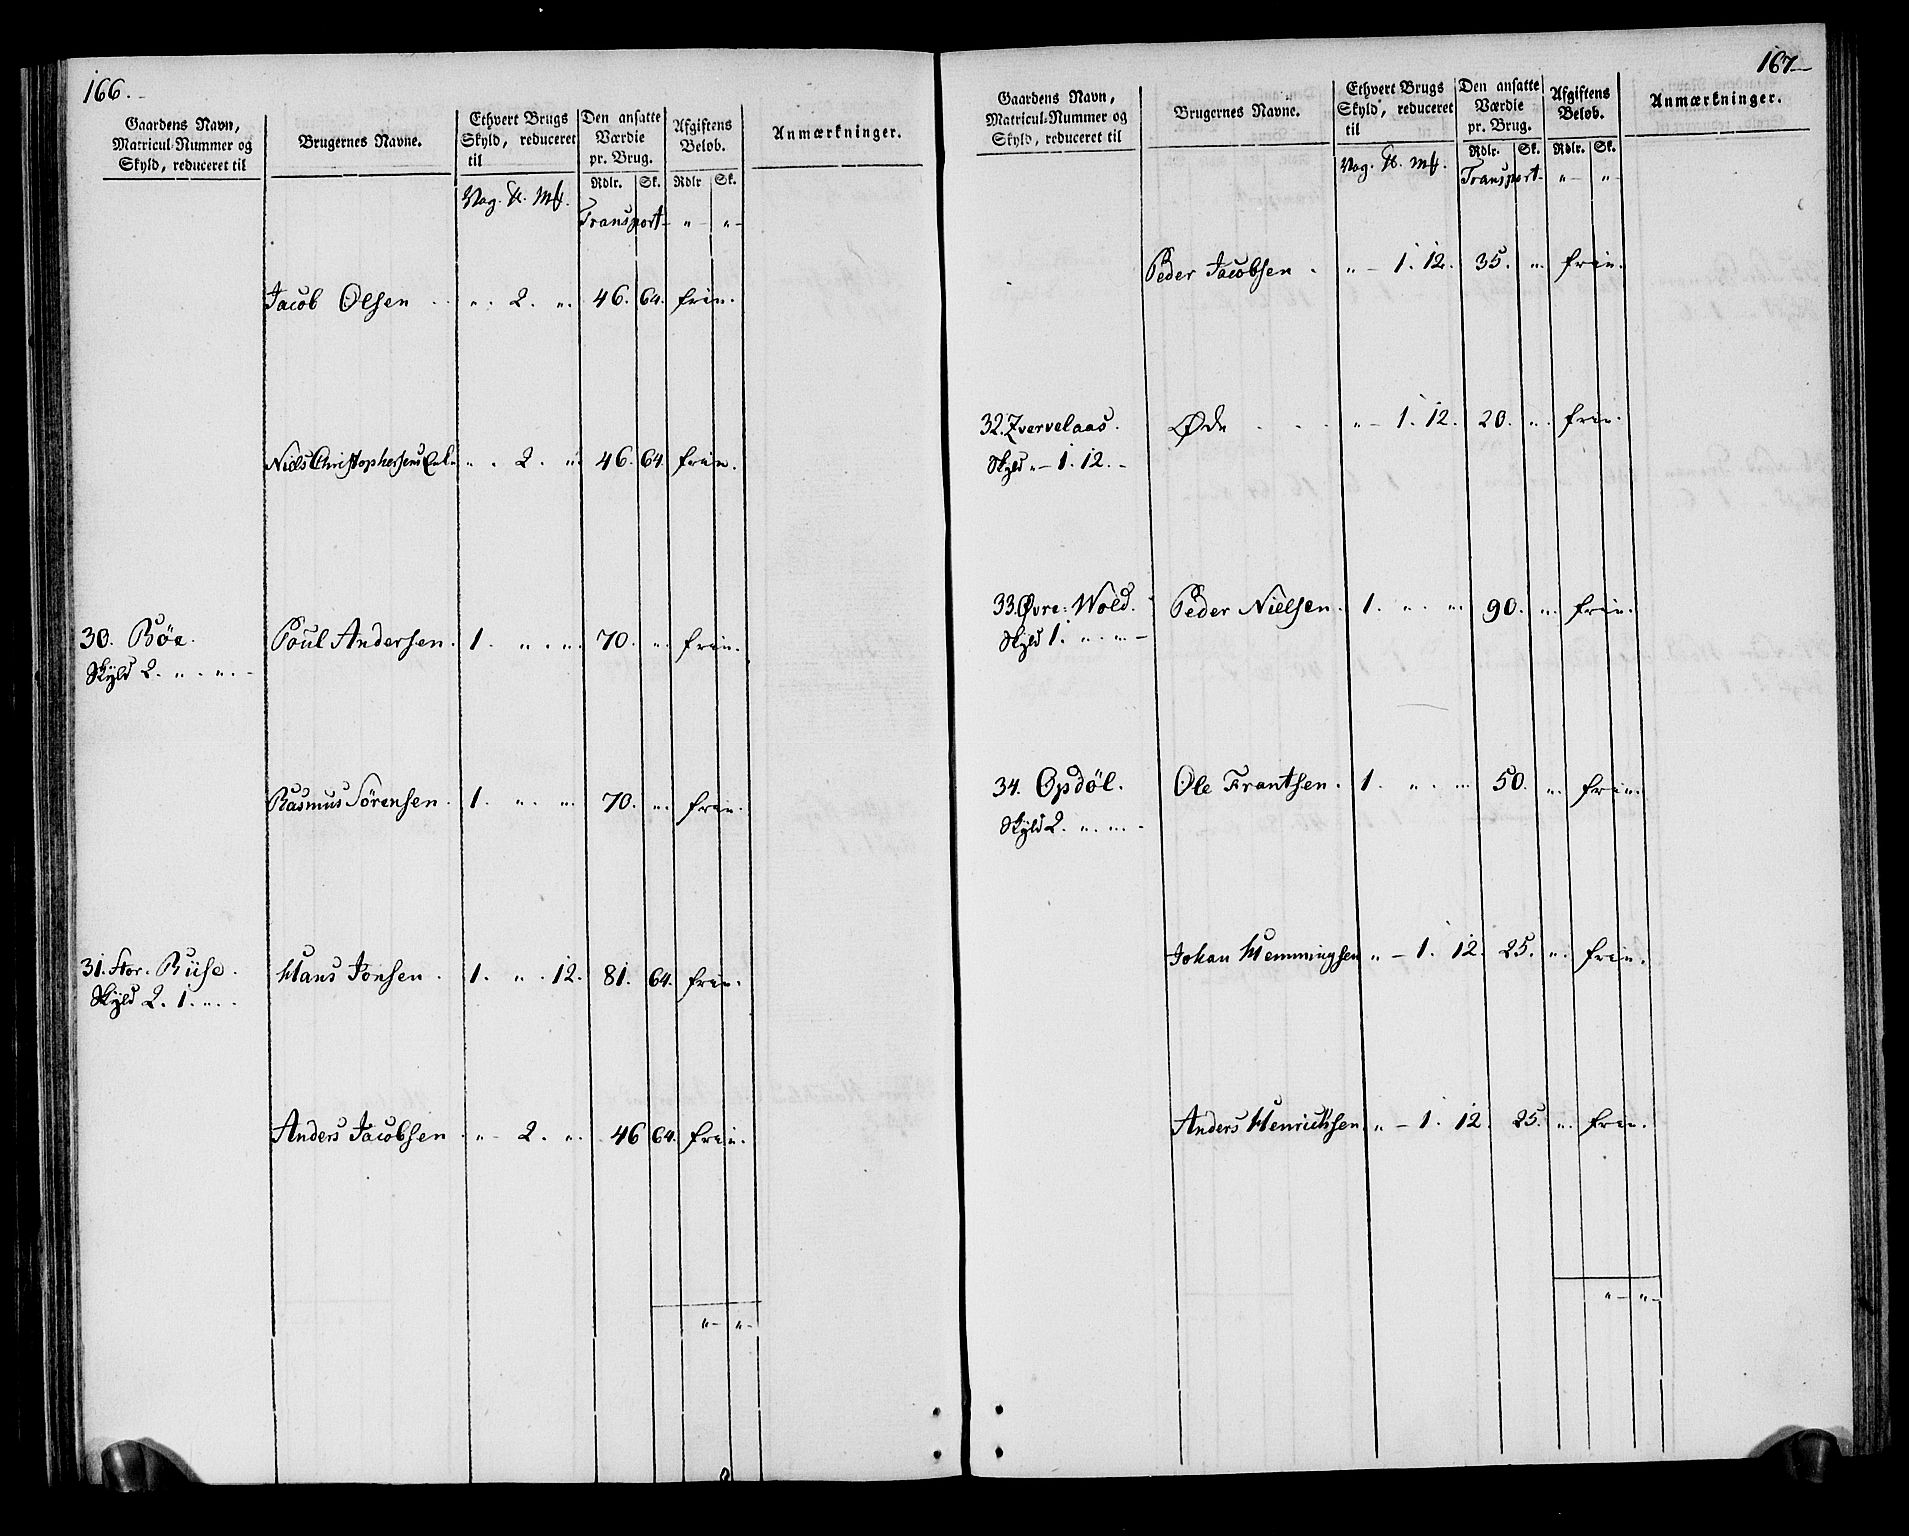 166.
Gaardens Navn, Matricul-Nummer og Skyld, reduceret til
Brugernes Navne.
Ethvert Brugs Skyld, reduceret til
Den ansatte Værdie pr. Brug.
Afgiftens Beløb.
Anmærkninger.
Rdlr. Sk. Rdlr Sk.
Transport „ — „ —
Jacob Olsen . . „ . 2. „. 46. 64. frie.
Niels Christophersens „ . 2. „. 46. 64. frie.
30. Böe. Poul Andersen. 1. „. „. 70. „. frie.
Skyld 2. „. „. —
Rasmus Sörensen. 1. „. „. 70. „. frie.
31. Stor-Riise. Hans Jonsen. 1. „. 12. 81. 64. frie.
Skyld 2. 1. „. .
Anders Jacobsen „ — 2. „. 46 64. frie.
„ — „ —
167 —
Gaardens Navn, Matricul-Nummer og Skyld, reduceret til
Brugernes Navne.
Ethvert Brugs Skyld, reduceret til
Den ansatte Værdie pr. Brug.
Afgiftens Beløb.
Anmærkninger.
Rdlr. Sk. Rdlr. Sk.
Transport — „ — „ —
Peder Jacobsen . „ — 1. 12. 35. „. frie.
32. Zvervelaas. Øde . . . „ — 1. 12. 20. „. frie.
Skyld „ — 1. 12. —
33. Øvre: Wold. Peder Nielsen. 1. „. „. 90. „. frie.
Skyld 1. „. „. —
34. Opdöl. Ole Frantsen. 1. „. „. 50. „. frie.
Skyld 2. „. „. —
Johan Hemmingsen „ — 1. 12. 25. „. frie.
Anders Henrichsen „ — 1. 12. 25. „. frie.
„ — „ —